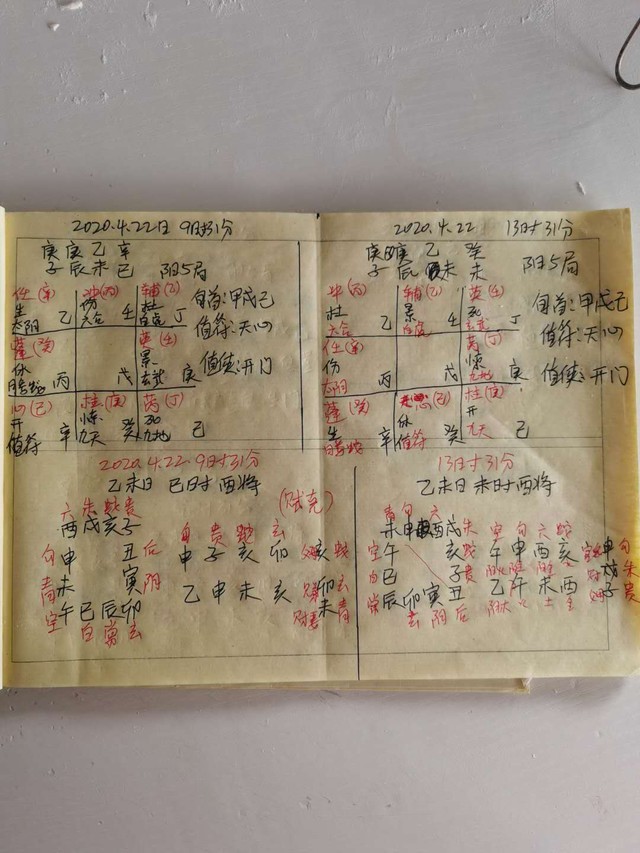 2020.4.22日 9时31分
庚庚乙辛
子辰未巳 阳5局
任(辛) 冲(丙) 辅(乙)
生 伤 杜
太阴 乙 六合 壬 白虎 丁
旬首:甲戌己
值符:天心
值使:开门
蓬(癸) 英(壬)
休 景
丙 戊 玄武 庚
心(己) 柱(庚) 芮(丁)
开 惊 死
值符 辛 九天 癸 九地 己
2020.4.22 9时31分
乙未日 巳时 酉将
六朱蛇贵
酉戌亥子
勾申 丑后
青未 寅阴
空午巳辰卯
白常玄
白贵蛇玄
申子亥卯
乙申未亥
2020.4.22 13时31分
庚 乙 癸
子辰 未 未 阳5局
冲(丙) 辅(乙) 英(壬)
杜 景 死
六合 乙 白虎 壬 玄武 丁
旬首:甲戌己
值符:天心
值使:开门
任(辛) 芮(丁)
伤 惊
太阴 丙 戊 九地 庚
蓬(癸) 心(己) 柱(庚)
生 休 开
辛 值符 癸 九天 己
13时31分
乙未日 未时酉将
青勾六
戌朱
空午 亥蛇
白巳 子贵
常辰卯寅丑
玄阴后
空勾六蛇
午申酉亥
乙午未酉